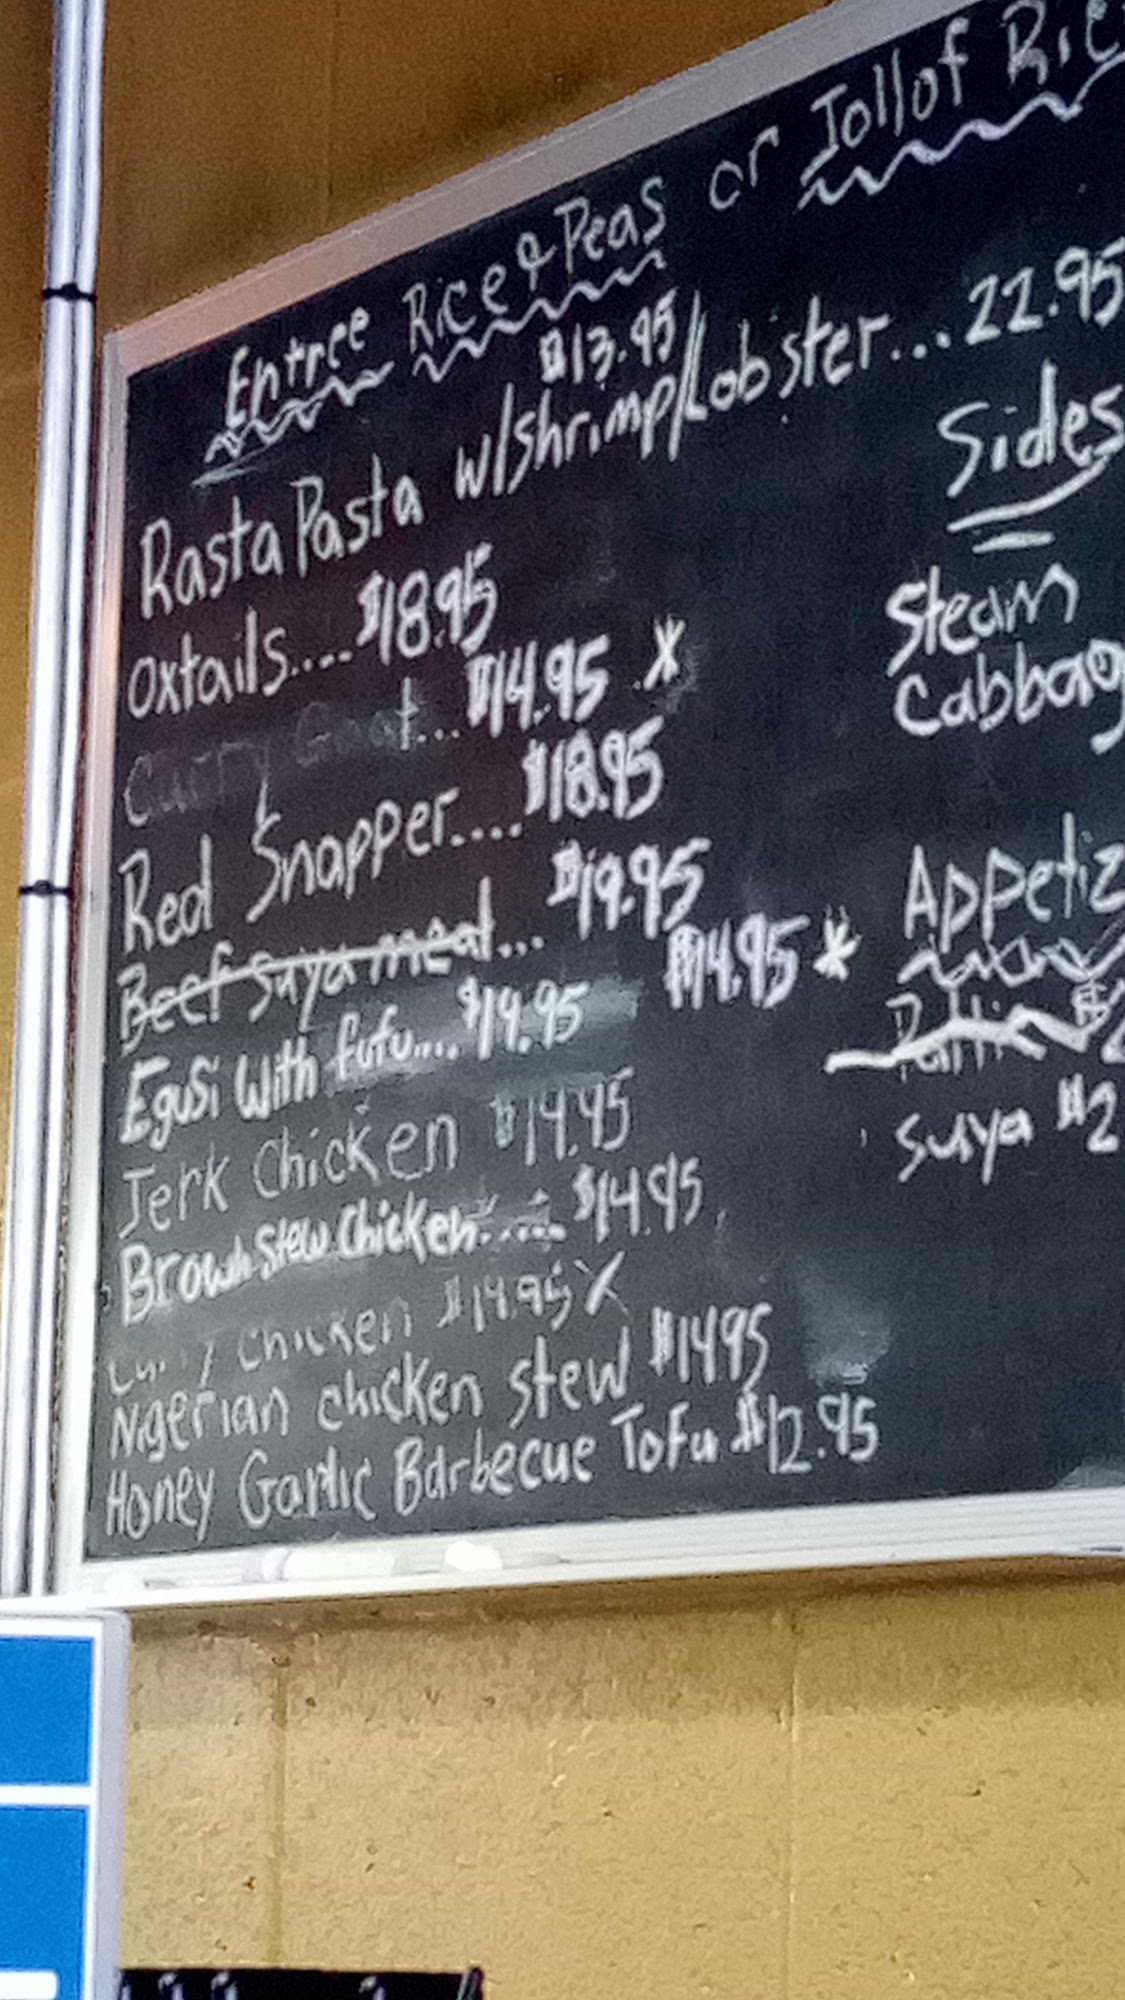 Entree Rice & Peas or Jollof Ric
$13.95
Rasta Pasta w/shrimp/Lobster...22.95
Oxtails....$18.95
Curry Goat...$14.95 X
Red Snapper....$18.95
Beef suya meal...$19.95
$14.95 *
Egusi With fufu....$19.95
Jerk Chicken $14.95
Brown stew chicken.....$14.95
Curry Chicken $14.95 X
Nigerian chicken stew $1495
Honey Garlic Barbecue Tofu $12.95
Sides
Steam
Cabbag
Appetiz
Suya $2